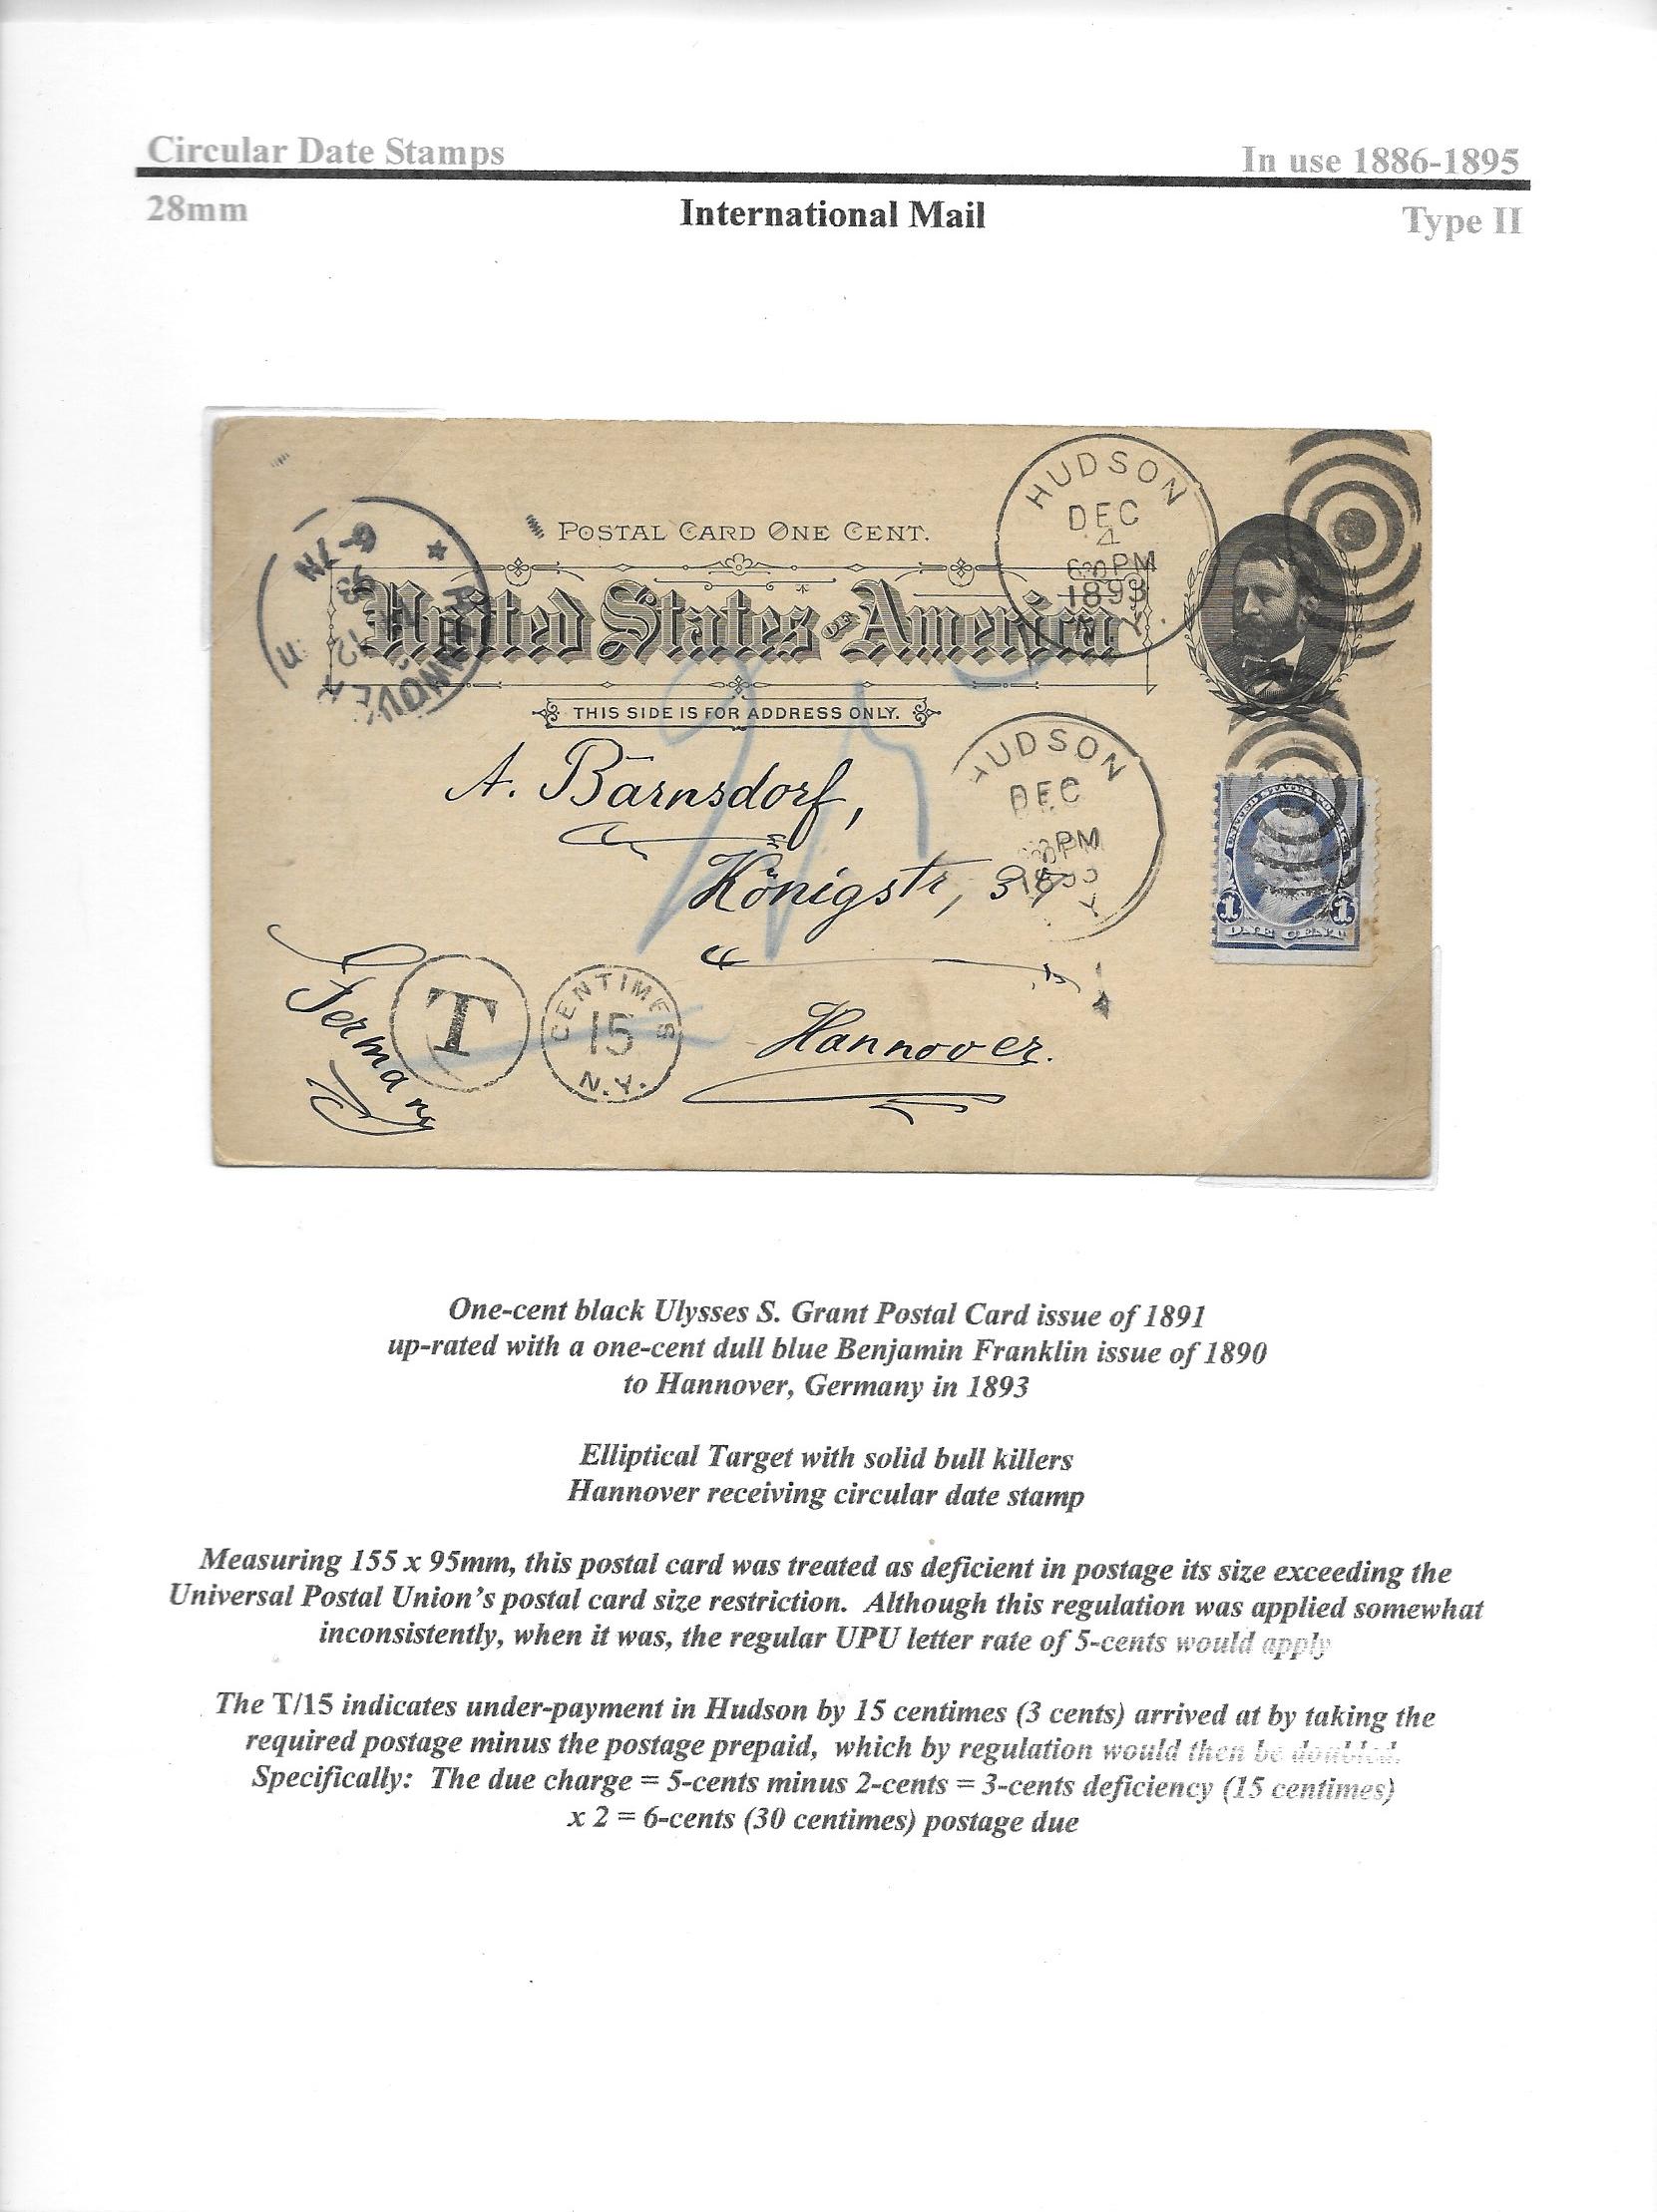 Circular Date Stamps
In use 1886-1895
28mm
International Mail
Type II
HUDSON
DEC
4
630PM
1893
N.Y.
6-7N
HANNOVER
POSTAL CARD ONE CENT.
United States of America
THIS SIDE IS FOR ADDRESS ONLY.
25
HUDSON
DEC
PM
Y
A. Bärnsdorf,
Königstr,
UNITED STATES POSTAGE
1 1
ONE CENT
Germany
T
CENTIMES
15
N.Y.
Hannover.
One-cent black Ulysses S. Grant Postal Card issue of 1891
up-rated with a one-cent dull blue Benjamin Franklin issue of 1890
to Hannover, Germany in 1893
Elliptical Target with solid bull killers
Hannover receiving circular date stamp
Measuring 155 x 95mm, this postal card was treated as deficient in postage its size exceeding the
Universal Postal Union's postal card size restriction. Although this regulation was applied somewhat
inconsistently, when it was, the regular UPU letter rate of 5-cents would apply
The T/15 indicates under-payment in Hudson by 15 centimes (3 cents) arrived at by taking the
required postage minus the postage prepaid, which by regulation would then be doubled.
Specifically: The due charge = 5-cents minus 2-cents = 3-cents deficiency (15 centimes)
x 2 = 6-cents (30 centimes) postage due